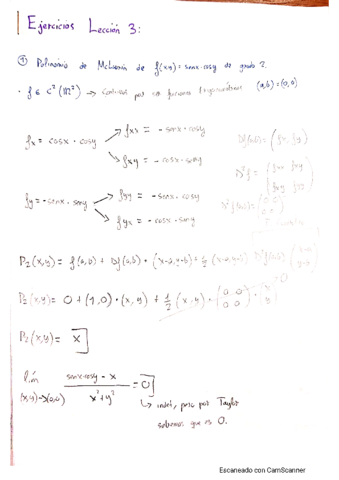 Ejercicios Lección 3:
① Polinomio de McLaurin de f(x,y) = senx·cosy de grado 2.
· f ∈ C²(ℝ²) → continuas por ser funciones trigonométricas (a,b) = (0,0)
fxx = -senx·cosy
fx = cosx·cosy
fxy = -cosx·seny
Df(a,b) = (fx, fy)
D²f = (fxx fxy
fxy
fyy = -senx·cosy
fy = -senx·seny
fyx = -cosx·seny
P₂(x,y) = f(a,b) + Df(a,b)·(x-a,y-b) + 1/2 (x-a,y-b) D²f(a,b)
P₂(x,y) = 0 + (1,0)·(x,y) + 1/2 (x,y)·(0 0
0 0)·(x
y) 0
P₂(x,y) = x
lím senx·cosy - x = 0
(x,y)→(0,0) x²+y²
↳ indet, pero por Taylor
sabemos que es 0.
Escaneado con CamScanner